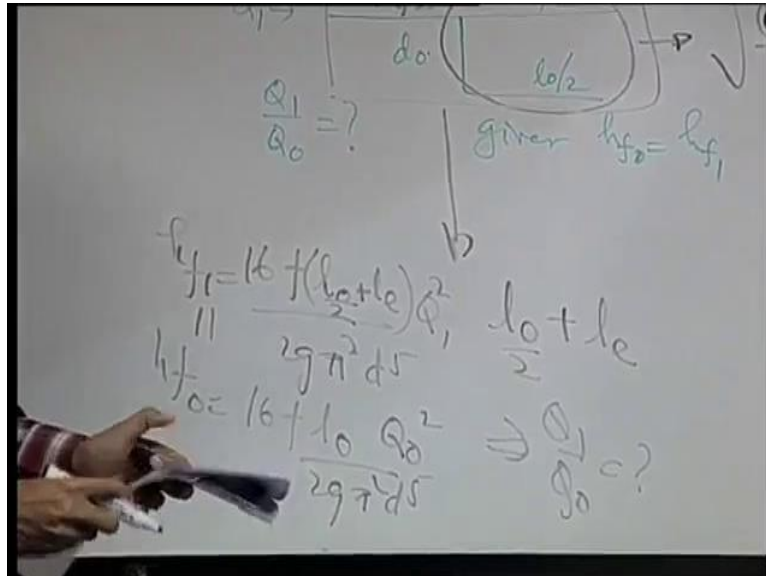 d₀.
l₀/2
Q₁/Q₀ = ?
given h_f₀ = h_f₁
h_f₁ = 16 f(l₀/2 + lₑ) Q₁² / 2gπ²d5
l₀/2 + lₑ
||
h_f₀ = 16 f l₀ Q₀² / 2gπ²d5
⇒ Q₁/Q₀ = ?